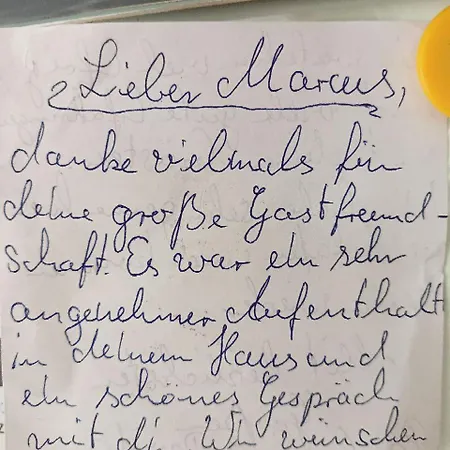 Lieber Marcus,
danke vielmals für
deine große Gastfreund-
schaft. Es war ein sehr
angenehmer Aufenthalt
in deinem Haus und
ein schönes Gespräch
mit dir. Wir wünschen